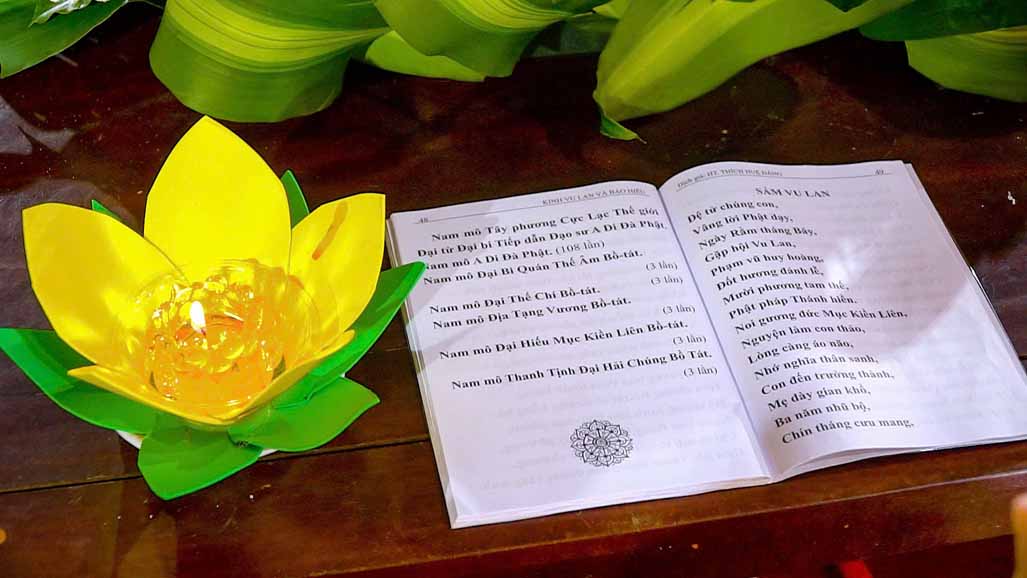 48
KINH VU LAN VÀ BÁO HIẾU
Nam mô Tây phương Cực Lạc Thế giới
Đại từ Đại bi Tiếp dẫn Đạo sư A Di Đà Phật.
Nam mô A Di Đà Phật. (108 lần)
Nam mô Đại Bi Quán Thế Âm Bồ-tát.
(3 lần)
Nam mô Đại Thế Chí Bồ-tát.
(3 lần)
Nam mô Địa Tạng Vương Bồ-tát.
(3 lần)
Nam mô Đại Hiếu Mục Kiền Liên Bồ-tát.
(3 lần)
Nam mô Thanh Tịnh Đại Hải Chúng Bồ Tát.
(3 lần)
Dịch giả: HT. THÍCH HUỆ ĐĂNG
49
SÁM VU LAN
Đệ tử chúng con,
Vâng lời Phật dạy,
Ngày Rằm tháng Bảy,
Gặp hội Vu Lan,
Phạm vũ huy hoàng,
Đốt hương đảnh lễ,
Mười phương tam thế,
Phật pháp Thánh hiền.
Noi gương đức Mục Kiền Liên,
Nguyện làm con thảo,
Lòng càng áo não,
Nhớ nghĩa thân sanh,
Con đến trưởng thành,
Mẹ dày gian khổ,
Ba năm nhũ bộ,
Chín tháng cưu mang,